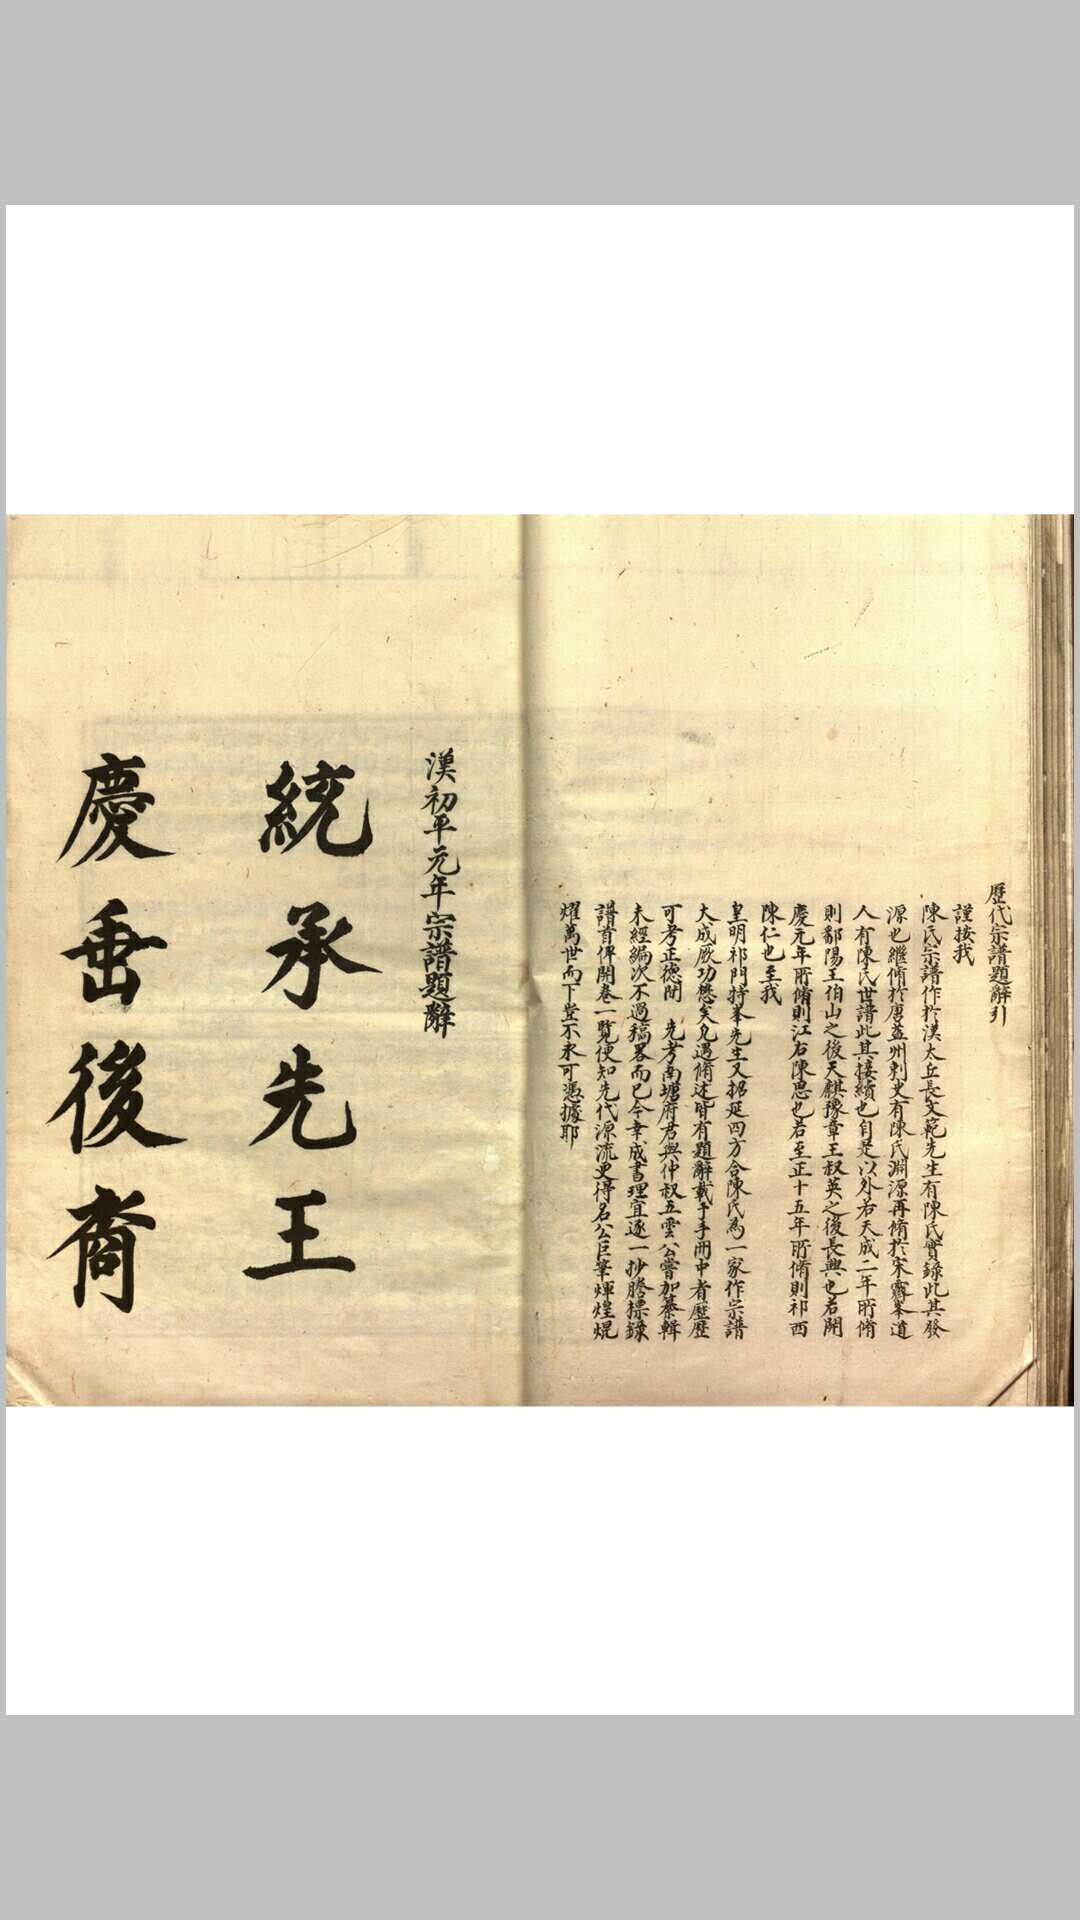 歷代宗譜題辭引
謹按我
陳氏宗譜作於漢太丘長文範先生有陳氏實錄此其發
源也繼脩於唐益州刺史有陳氏淵源再脩於宋霽峯道
人有陳氏世譜此其接續也自是以外若天成二年所脩
則鄱陽王伯山之後天麒豫章王叔英之後長興也若開
慶元年所脩則江右陳思也若至正十五年所脩則祁西
陳仁也至我
皇明祁門持峯先生又招延四方合陳氏為一家作宗譜
大成厥功懋矣凡遇脩述皆有題辭載于手冊中者歷歷
可考正德間 先考南塘府君與仲叔五雲公嘗加纂輯
未經編次不過稿畧而已今幸成書理宜逐一抄謄摽錄
譜首俾開卷一覽便知先代源流更得名公巨筆煇煌焜
燿萬世而下豈不永可憑據耶
漢初平元年宗譜題辭
統承先王
慶垂後裔